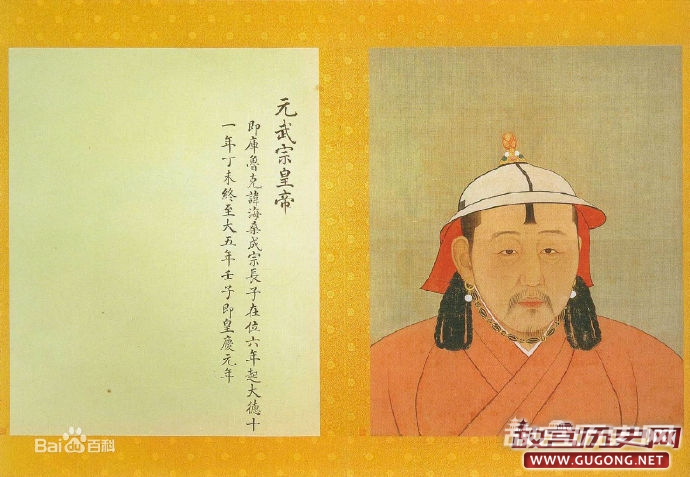 元武宗皇帝
即庫魯克諱海桑成宗長子在位六年起大德十
一年丁未終至大五年壬子即皇慶元年
Bai 百科
故宫历史网
WWW.GUGONG.NET